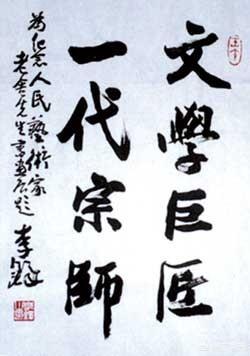 文學巨匠
一代宗師
为纪念人民藝術家
老舍先生書畫展題
李鐸